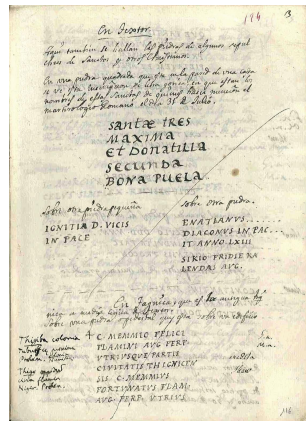 194
13
En Testor.
Aqui tambien se hallan las piedras de algunos sepul
chros de Santos y otros Christianos.
En una piedra quadrada que esta en la pared de una casa
se ve esta inscripcion de letra que estan los
nombres de estas Santas de quienes hace mencion el
martirologio Romano el dia 30 de Julio.
SANTÆ TRES
MAXIMA
ET DONATILLA
SECUNDA
BONA PUELA
Sobre una piedra pequeña
IGNITIA D. VICIS
IN PACE
Sobre otra piedra.
ENATLANUS.....
DIACONUS IN PAC...
IT ANNO LXIII
SIRIO PRIDIE KA
LENDAS AUG.
En Taquica, que es
media legua de Testor,
sobre una piedra que esta sobre un edificio
Thisita colonia
C. MEMMIO FELICI
FLAMINI AUG. PERP.
UTRIUSQUE PARTIS
CIVITATIS THIGNICEN
SIS C. MEMMIUS
FORTUNATUS FLAM.
AUG. PERP. UTRIUS